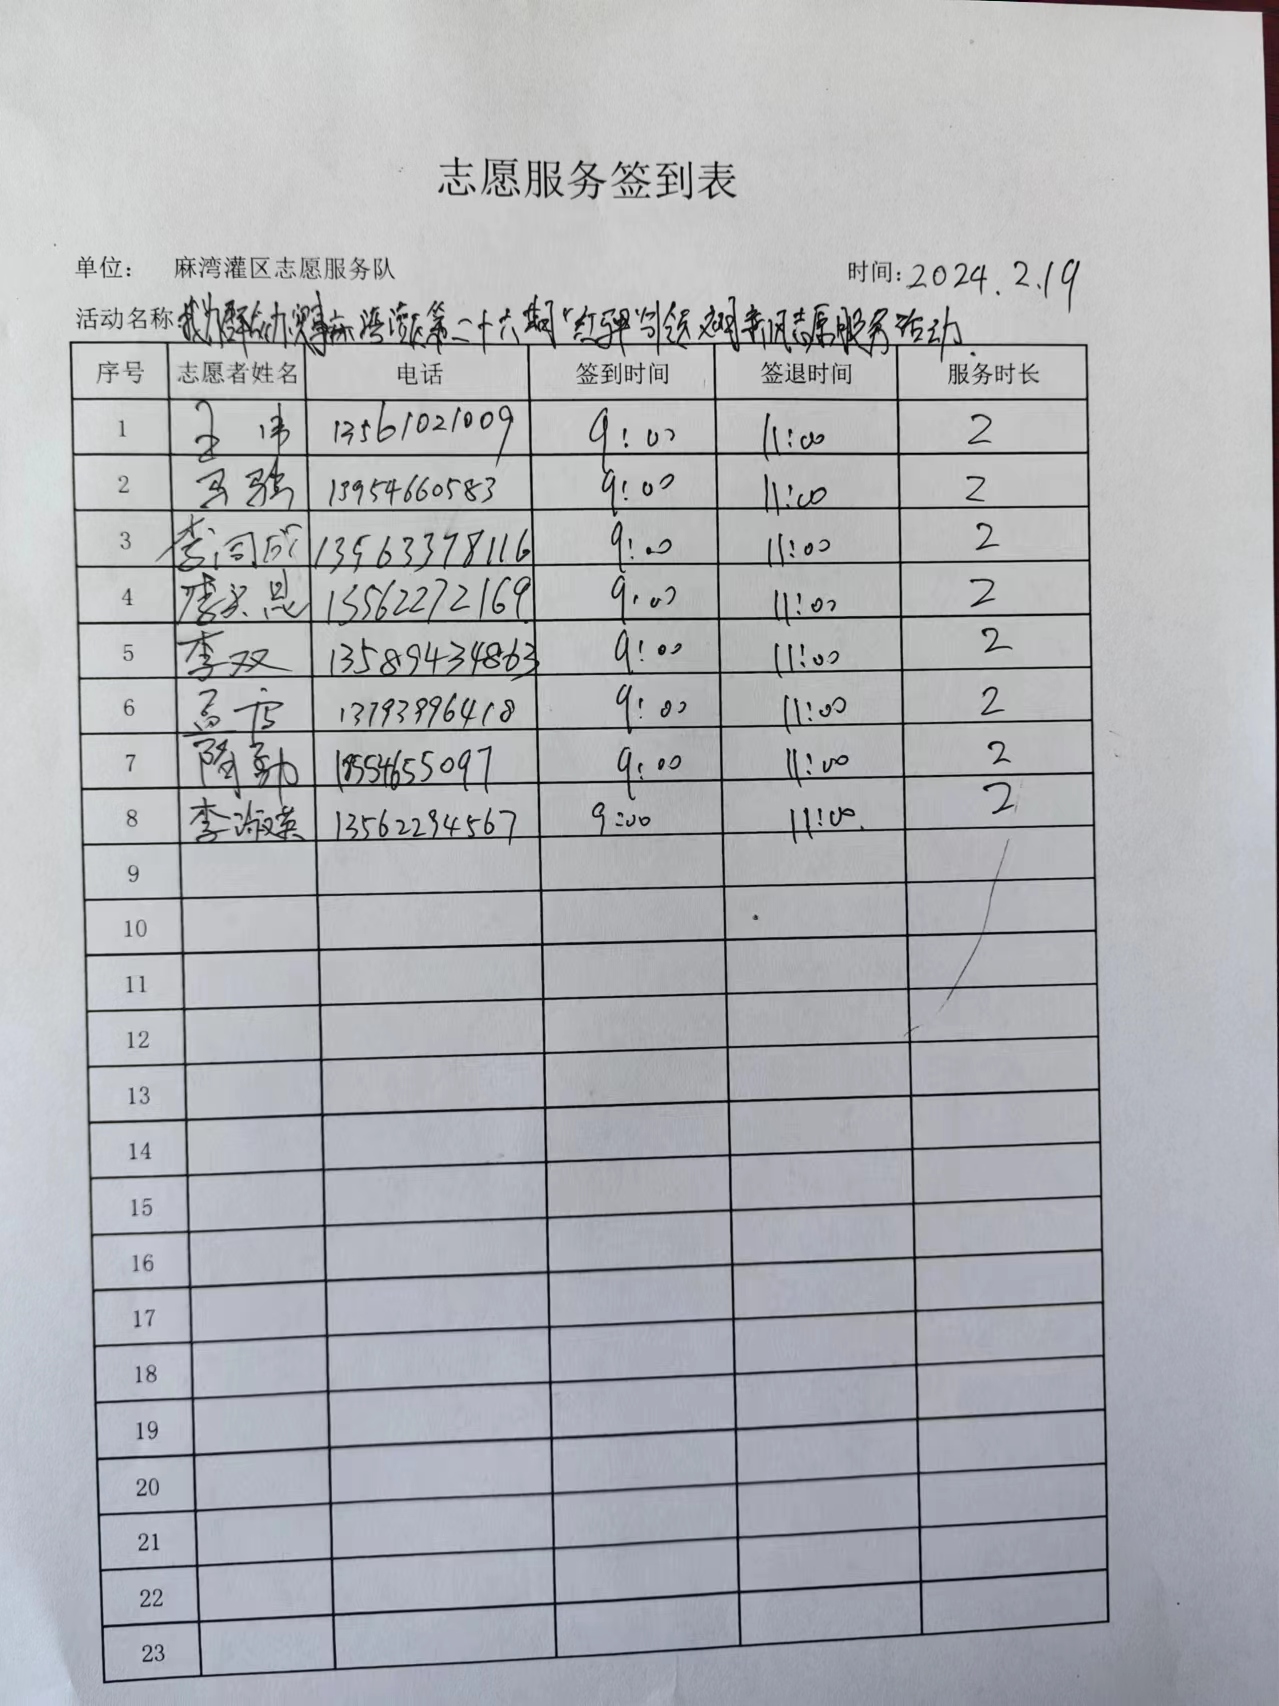 志愿服务签到表
单位： 麻湾灌区志愿服务队 时间：2024.2.19
活动名称 我为群众办实事麻湾灌区第二十六期“红 引领 文明新风志愿服务活动
序号 志愿者姓名 电话 签到时间 签退时间 服务时长
1 王伟 13561021009 9:00 11:00 2
2 13954660583 9:00 11:00 2
3 李同成 13963378116 9:00 11:00 2
4 李 恩 13562272169 9:00 11:00 2
5 李双 13589434863 9:00 11:00 2
6 高 13793996418 9:00 11:00 2
7 隋 18554655097 9:00 11:00 2
8 李淑英 13562294567 9:00 11:00 2
9
10
11
12
13
14
15
16
17
18
19
20
21
22
23